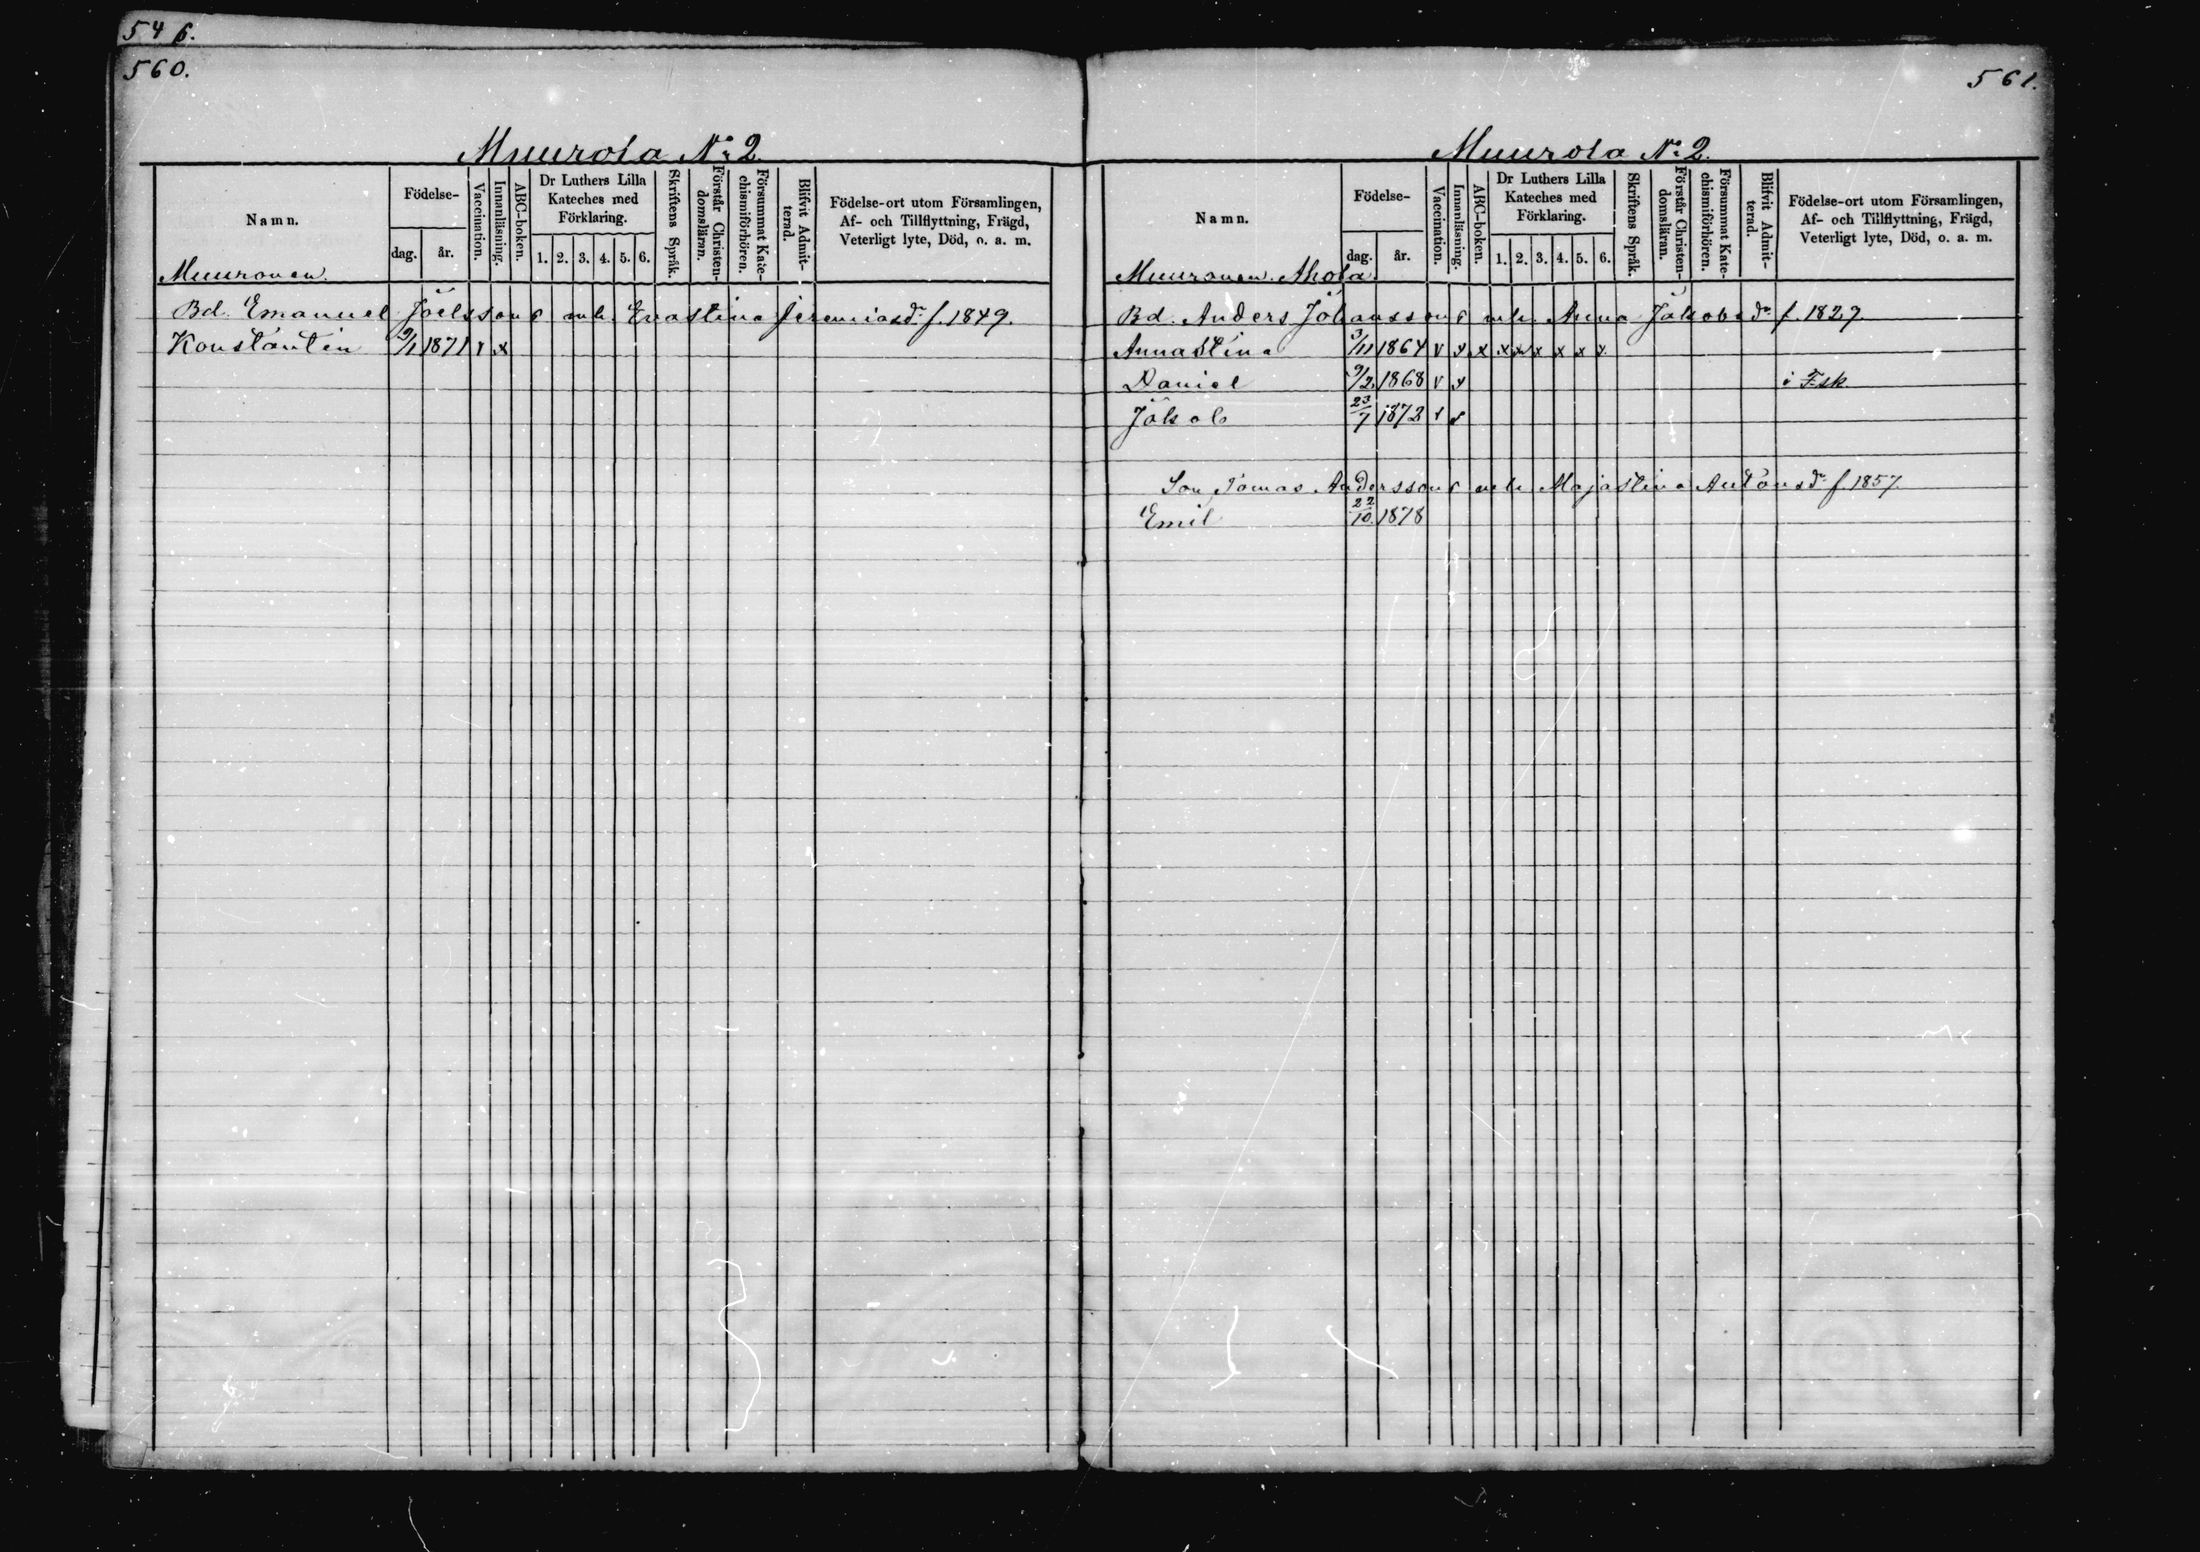 546.
560.
Muurola No 2.
Namn.
Födelse-
dag.
år.
Vaccination.
Innanläsning.
ABC-boken.
Dr Luthers Lilla Kateches med Förklaring.
1. 2. 3. 4. 5. 6.
Skriftens Språk.
Förstår Christendomsläran.
Försummat Katechismiförhören.
Blifvit Admitterad.
Födelse-ort utom Församlingen, Af- och Tillflyttning, Frägd, Veterligt lyte, Död, o. a. m.
Muuronen.
Bd. Emanuel Joelsson o mh. Evastina Jeremiasdr f. 1849.
Konstantin 2/1 1871 v x
561.
Muurola No 2.
Namn.
Födelse-
dag.
år.
Vaccination.
Innanläsning.
ABC-boken.
Dr Luthers Lilla Kateches med Förklaring.
1. 2. 3. 4. 5. 6.
Skriftens Språk.
Förstår Christendomsläran.
Försummat Katechismiförhören.
Blifvit Admitterad.
Födelse-ort utom Församlingen, Af- och Tillflyttning, Frägd, Veterligt lyte, Död, o. a. m.
Muuronen. Ahola.
Bd. Anders Johansson o mh. Anna Jakobsdr f. 1829.
Annastina 3/11 1864 v x x x x x x x x
Daniel 9/2 1868 v x i Fsk
Jakob 23/7 1872 v x
Son Tomas Andersson o mh Majastina Antonsdr f 1857
Emil 22/10. 1878